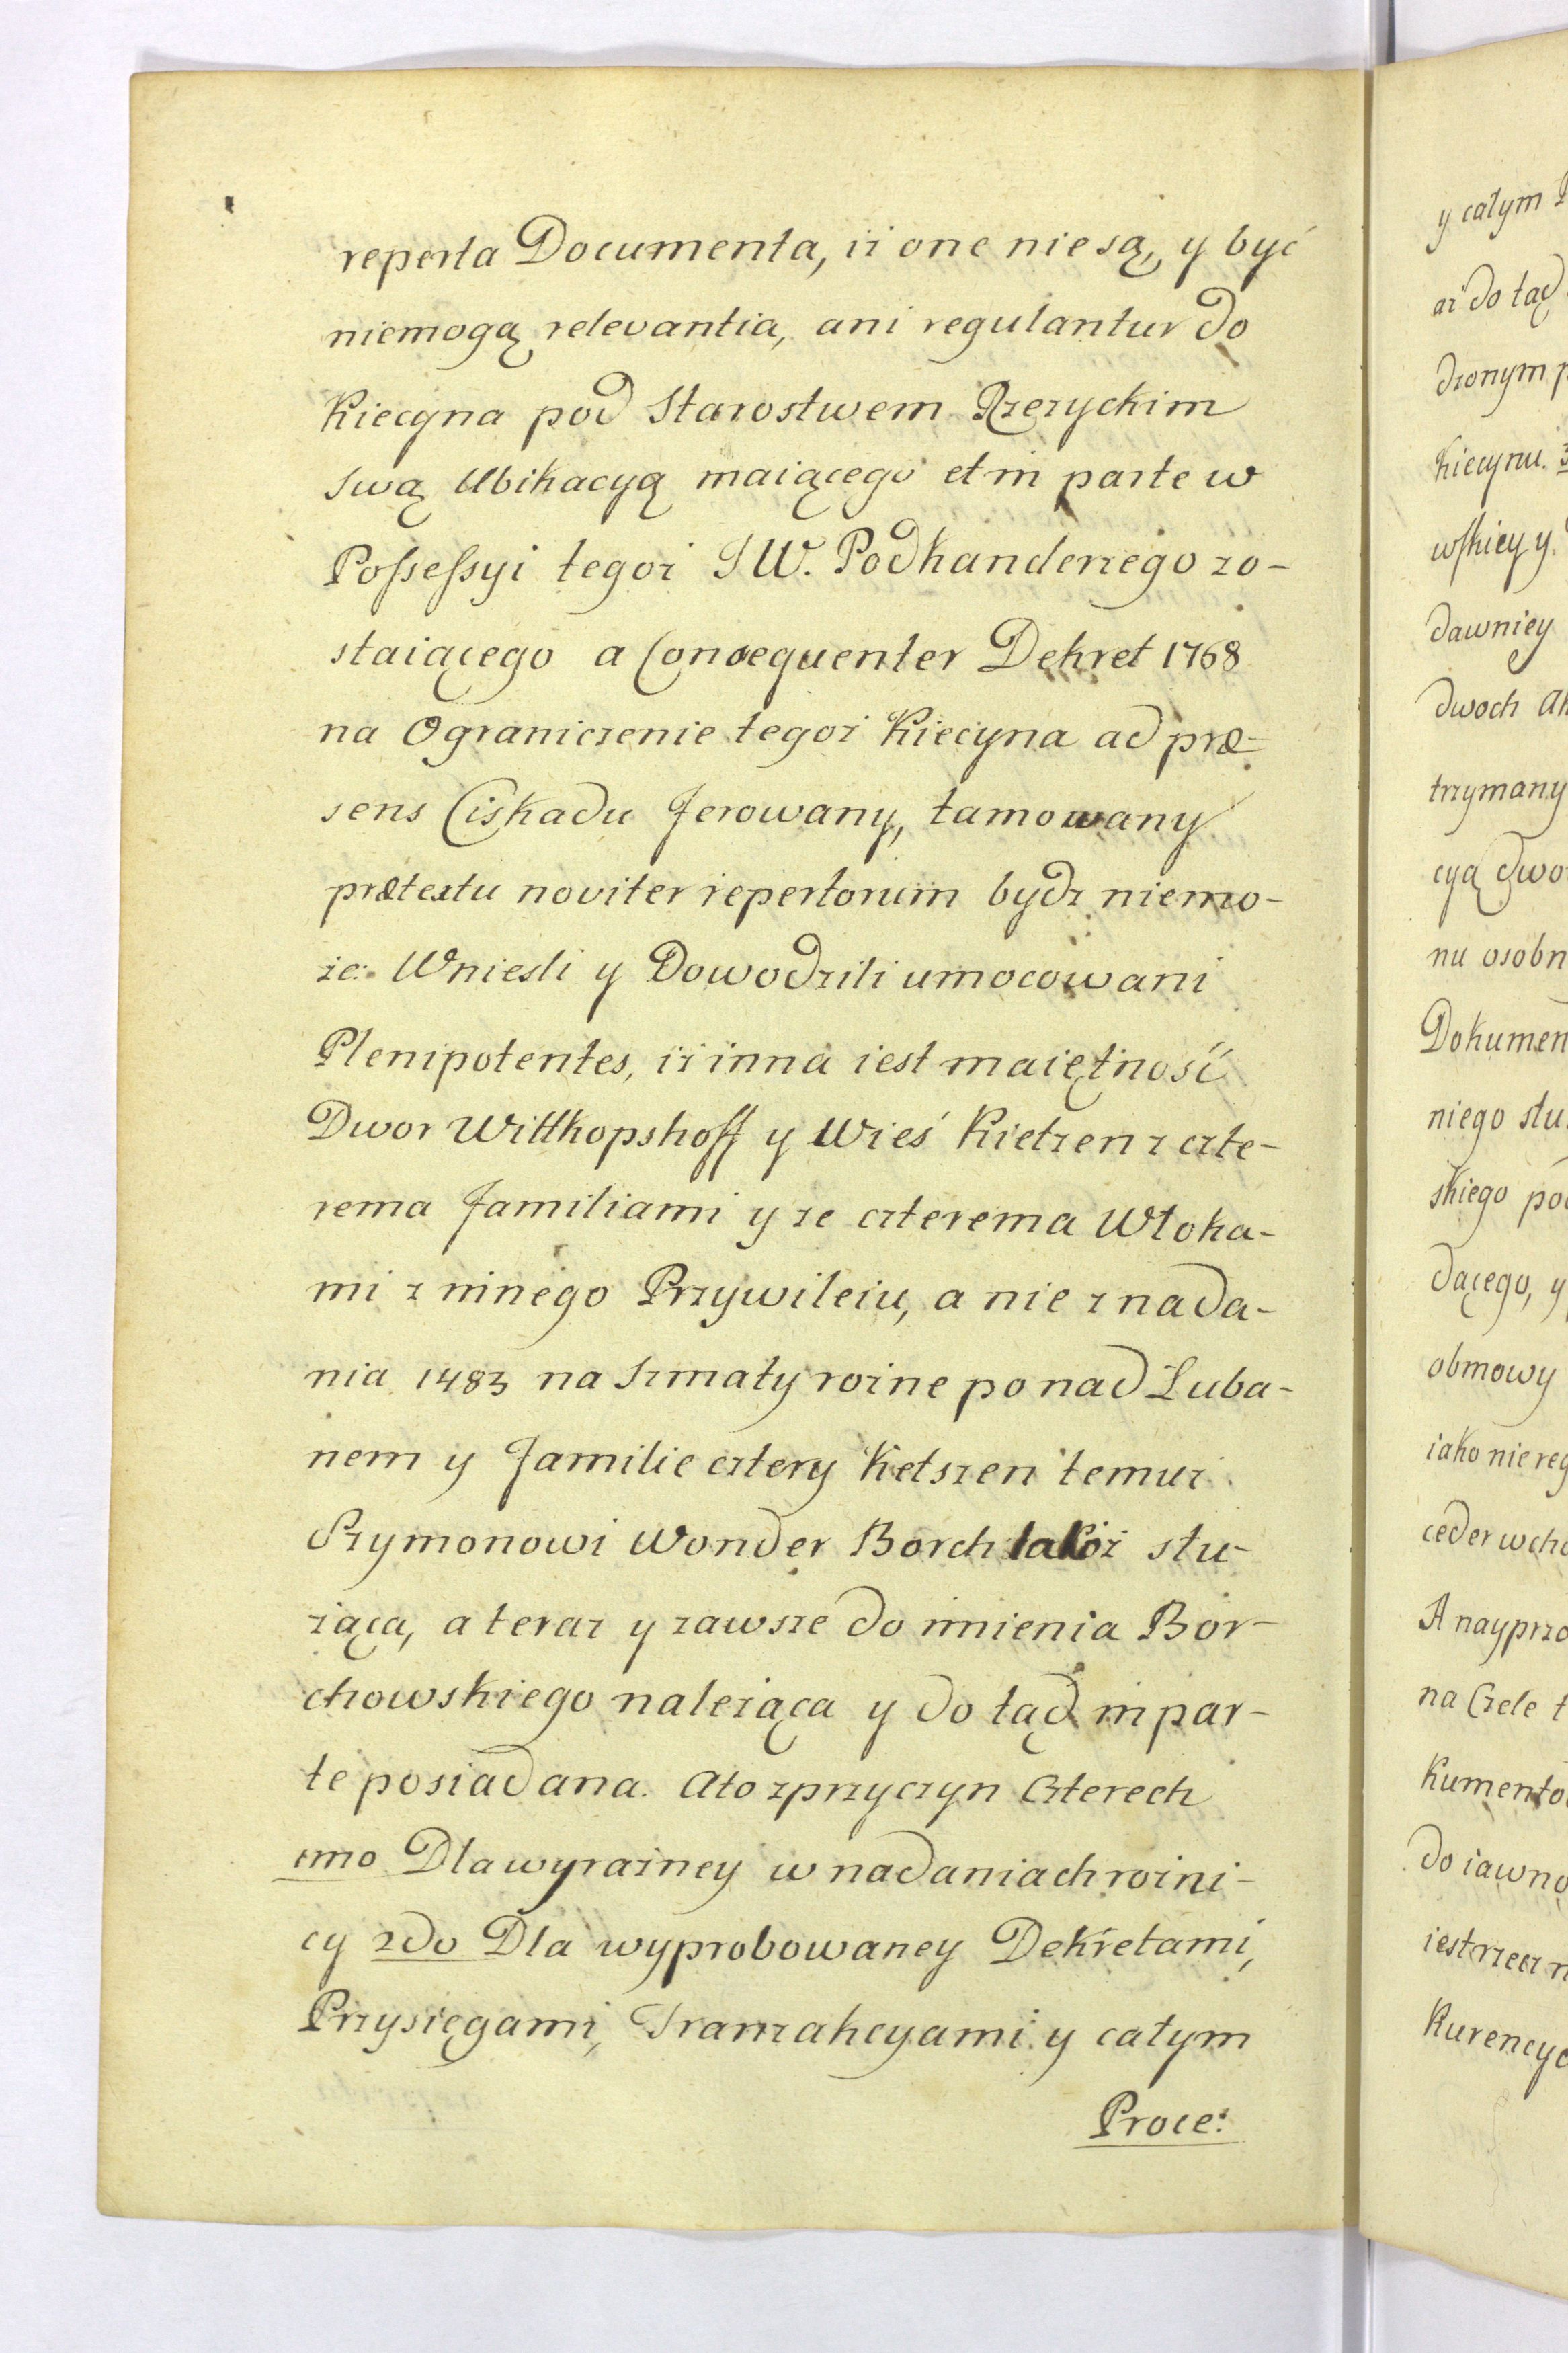 reperta Documenta, iż one nie są, y być
niemogą relevantia, ani regulantur do
Kiecyna pod Starostwem Rzezyckim
swą Ubikacyą maiącego et in parte w
Possessyi tegoż JW. Podkanclerzego zo-
staiącego a Consequenter Dekret 1768
na Ograniczenie tegoż Kiecyna ad præ-
sens Ciskadu ferowany, tamowany
prætextu noviter repertorum bydz niemo-
że. Wniesli y Dowodzili umocowani
Plenipotentes, iż inna iest maiętność
Dwor Wittkopshoff y Wieś Kietzen z czte-
rema familiami y ze czterema Włoka-
mi z innego Przywileiu, a nie z nada-
nia 1483 na Szmaty rożne ponad Luba-
nem y familie cztery Ketszen temuż
Szymonowi Wonder Borch także słu-
żąca, a teraz y zawsze do imienia Bor-
chowskiego należąca y do tąd in par-
te posiadana. A to z przyczyn Czterech
1mo Dla wyrażney w nadaniach rożni-
cy 2do Dla wyprobowaney Dekretami,
Przysięgami, Tranzakcyami y całym
Proce:
y całym
aż do tąd
dzonym
Kiecynu.
wskiey y
dawniey
dwoch
trzymany
cyą dwo
nu osobn
Dokumen
niego słu
skiego
dącego, y
obmowy
iako nie reg
ceder wcho
A nayprzo
na Czele t
kumento
do iawno
iest rzecz n
kurencyo